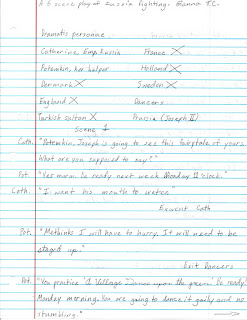 A 6 scent play of Russia fighting. Gianna T.C.
Dramatis personae
Catherine, Emp. Russia France X
Potemkin, her helper Holland X
Denmark X Sweden X
England X Dancers
Turkish sultan X Prussia (Joseph II)
Scene 1
Cath. "Potemkin, Joseph is going to see this fairytale of yours.
What are you supposed to say?"
Pot. "Yes ma'am. Be ready next week Monday 11 'clock."
Cath. "I want his mouth to water."
Exeunt Cath
Pot. "Methinks I will have to hurry. It will need to be
staged up."
Exit Dancers
Pot. "You practice 'A Village Dance upon the green.' Be ready
Monday morning. You are going to dance it gaily and no
stumbling."